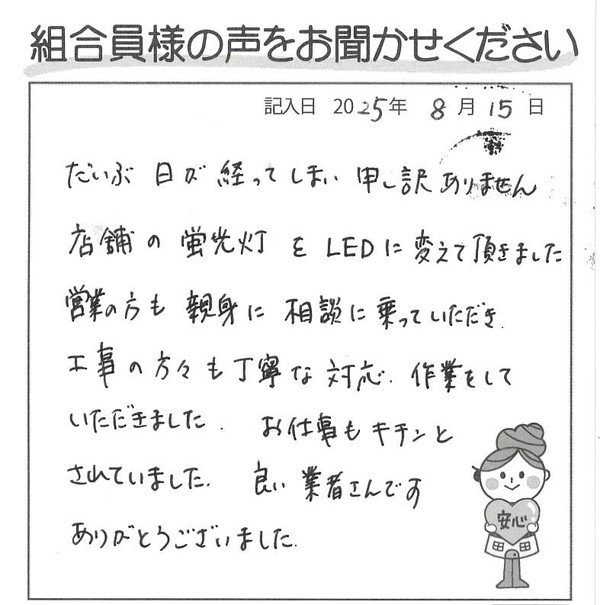 組合員様の声をお聞かせください
記入日 2025年 8月15日
だいぶ 日が 経ってしまい 申し訳ありません
店舗の蛍光灯をLEDに変えて頂きました
営業の方も親身に相談に乗っていただき
工事の方々も丁寧な対応.作業をして
いただきました. お仕事もキチンと
されていました. 良い業者さんです
ありがとうございました.
安心